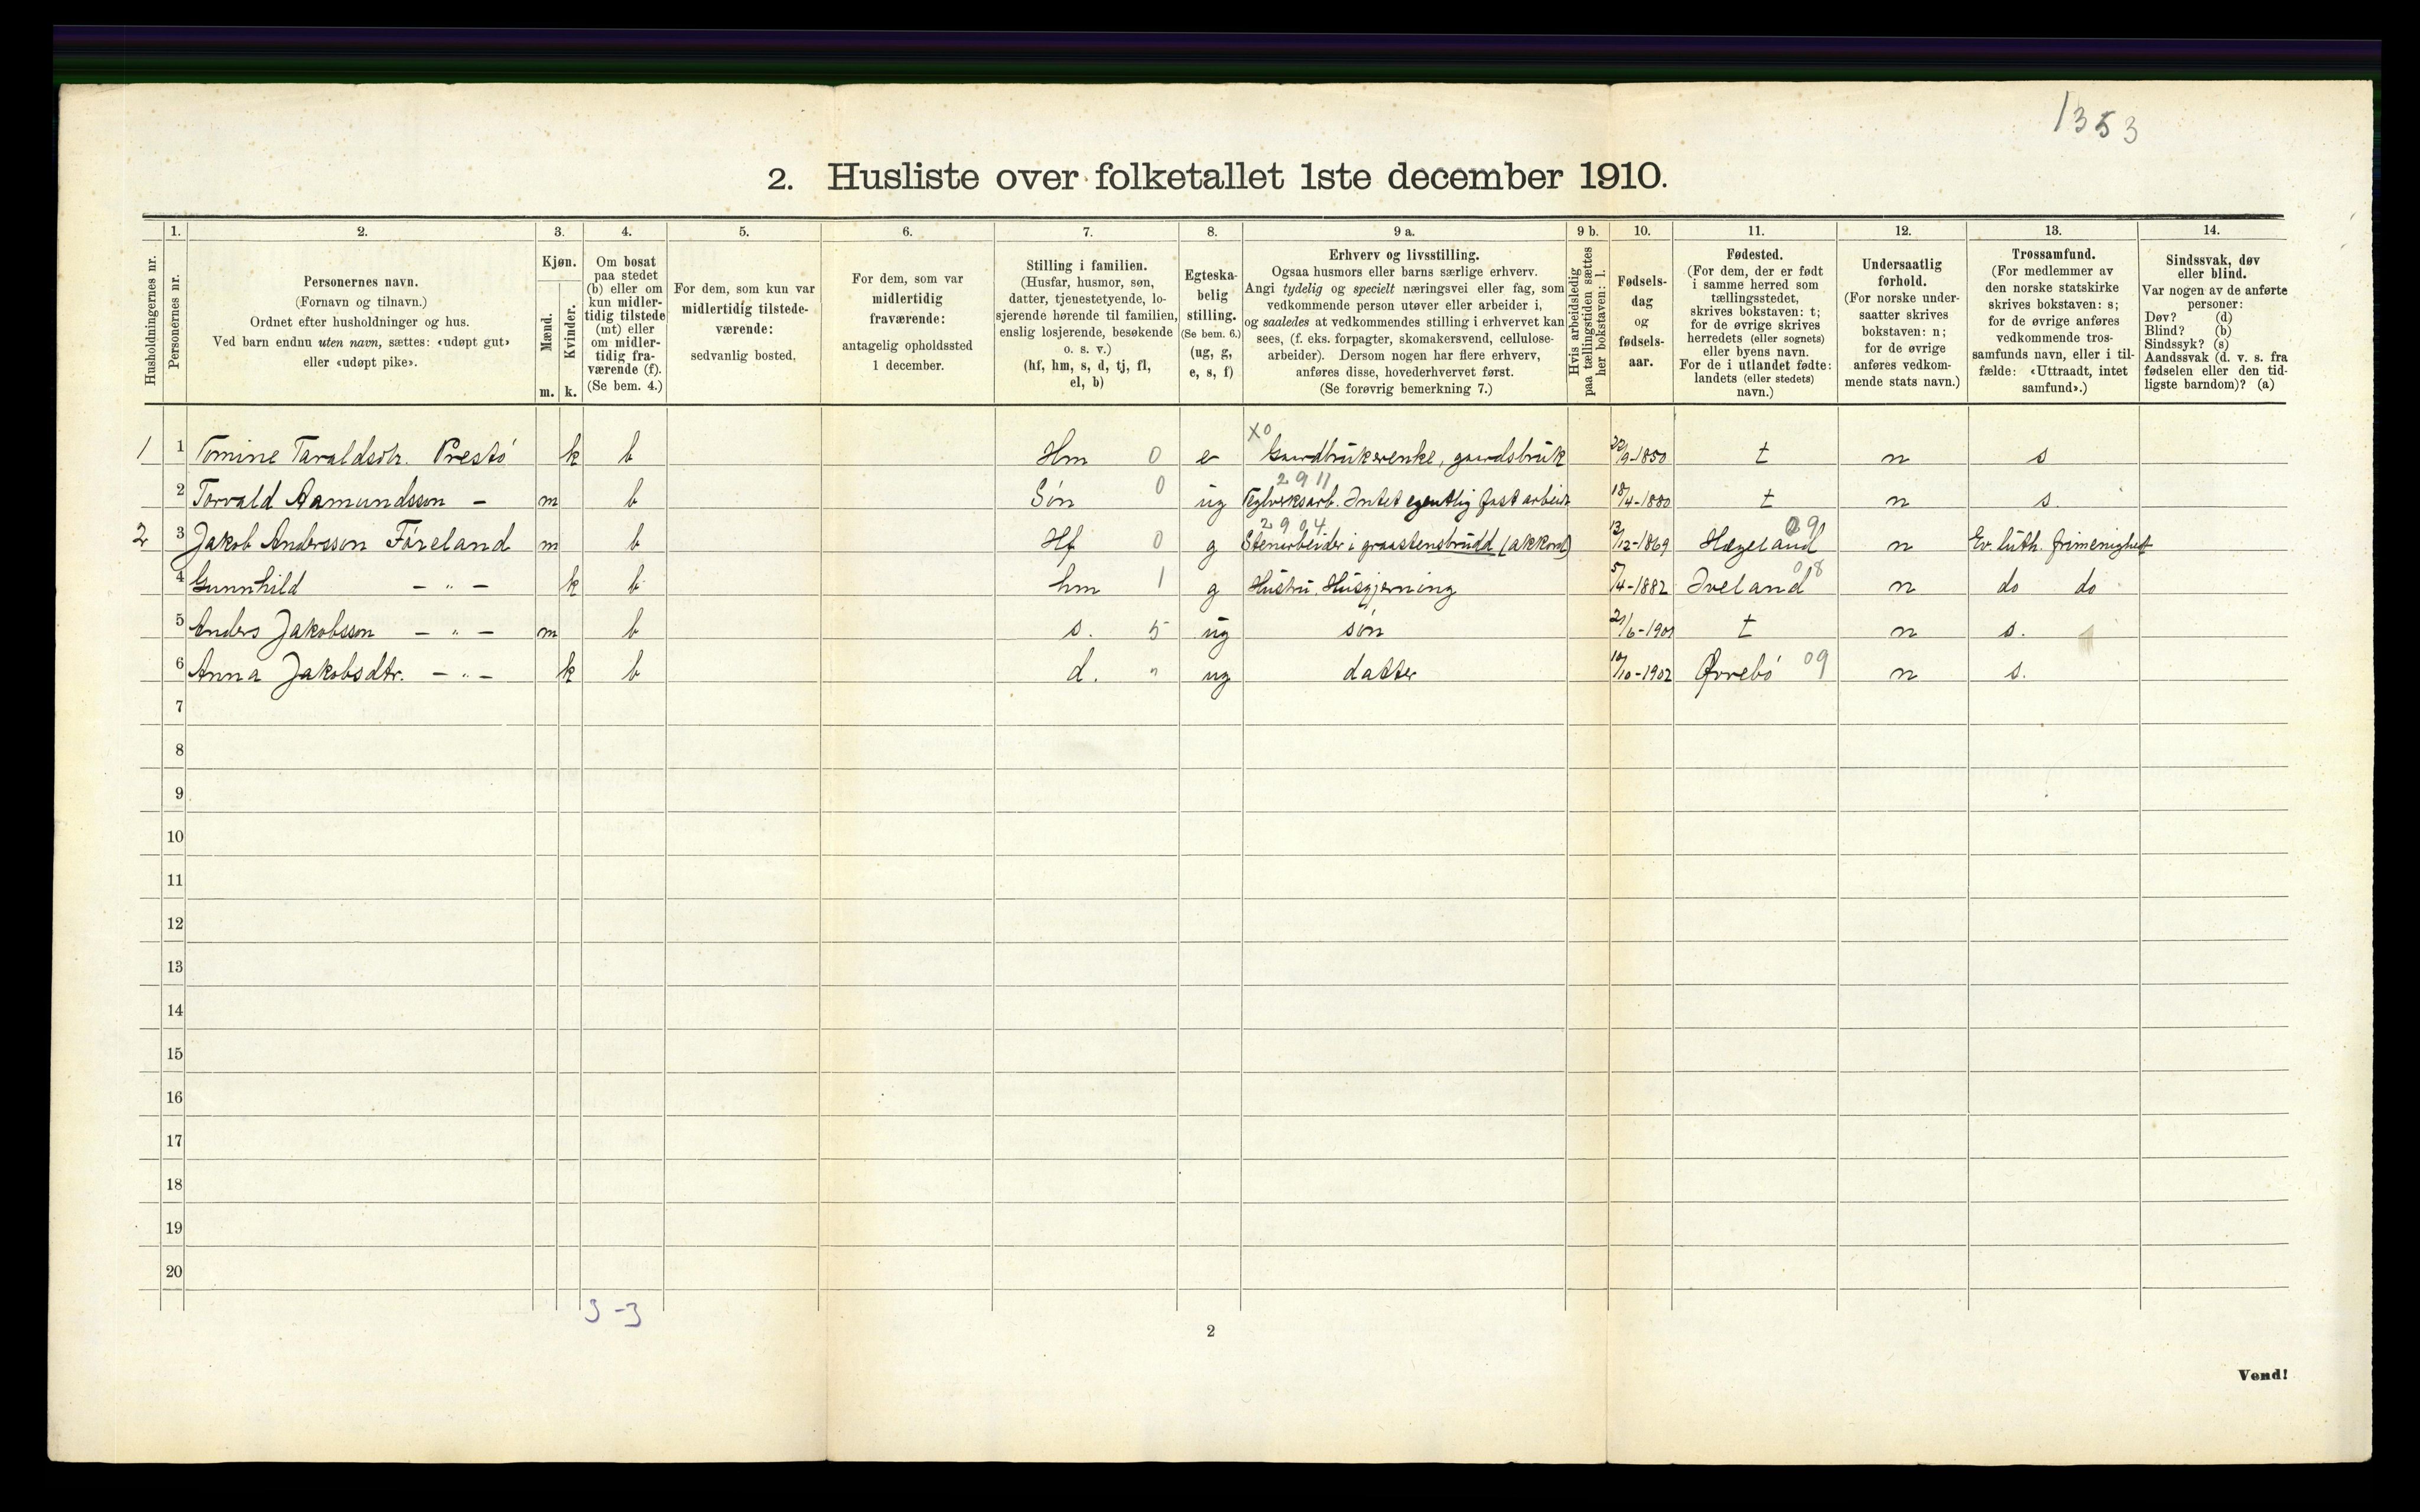 1353
2. Husliste over folketallet 1ste december 1910.
Husholdningernes nr.
1.
Personernes nr.
2.
Personernes navn.
(Fornavn og tilnavn.)
Ordnet efter husholdninger og hus.
Ved barn endnu uten navn, sættes: «udøpt gut»
eller «udøpt pike».
3.
Kjøn.
Mænd.
Kvinder.
m. k.
4.
Om bosat
paa stedet
(b) eller om
kun midler-
tidig tilstede
(mt) eller
om midler-
tidig fra-
værende (f).
(Se bem. 4.)
5.
For dem, som kun var
midlertidig tilstede-
værende:
sedvanlig bosted.
6.
For dem, som var
midlertidig
fraværende:
antagelig opholdssted
1 december.
7.
Stilling i familien.
(Husfar, husmor, søn,
datter, tjenestetyende, lo-
sjerende hørende til familien,
enslig losjerende, besøkende
o. s. v.)
(hf, hm, s, d, tj, fl,
el, b)
8.
Egteska-
belig
stilling.
(Se bem. 6.)
(ug, g,
e, s, f)
9 a.
Erhverv og livsstilling.
Ogsaa husmors eller barns særlige erhverv.
Angi tydelig og specielt næringsvei eller fag, som
vedkommende person utøver eller arbeider i,
og saaledes at vedkommendes stilling i erhvervet kan
sees, (f. eks. forpagter, skomakersvend, cellulose-
arbeider). Dersom nogen har flere erhverv,
anføres disse, hovederhvervet først.
(Se forøvrig bemerkning 7.)
9 b.
Hvis arbeidsledig
paa tællingstiden sættes
her bokstaven: l.
10.
Fødsels-
dag
og
fødsels-
aar.
11.
Fødested.
(For dem, der er født
i samme herred som
tællingsstedet,
skrives bokstaven: t;
for de øvrige skrives
herredets (eller sognets)
eller byens navn.
For de i utlandet fødte:
landets (eller stedets)
navn.)
12.
Undersaatlig
forhold.
(For norske under-
saatter skrives
bokstaven: n;
for de øvrige
anføres vedkom-
mende stats navn.)
13.
Trossamfund.
(For medlemmer av
den norske statskirke
skrives bokstaven: s;
for de øvrige anføres
vedkommende tros-
samfunds navn, eller i til-
fælde: «Uttraadt, intet
samfund».)
14.
Sindssvak, døv
eller blind.
Var nogen av de anførte
personer:
Døv? (d)
Blind? (b)
Sindssyk? (s)
Aandssvak (d. v. s. fra
fødselen eller den tid-
ligste barndom)? (a)
1 1 Tomine Taraldsdtr. Prestö k b Hm 0 e X0 Gaardbrukerenke, gaardsbruk 22/9-1850 t n s
2 Torvald Aamundsson - m b Sön 0 ug 2911 Teglverksarb. Intet egentlig fast arbeide 18/4-1880 t n s.
2 3 Jakob Andersson Föreland m b Hf 0 g 2904 Stenarbeider i graastensbrudd (akkord) 13/12-1869 Hægeland 09 n Ev. luth. frimenighet
4 Gunnhild - " - k b hm 1 g Hustru. Husgjerning 5/4-1882 Iveland 08 n do do
5 Anders Jakobsson - " - m b s. 5 ug sön 21/6-1901 t n s.
6 Anna Jakobsdtr. - " - k b d. " ug datter 10/10-1902 Øvrebö 09 n s.
7
8
9
10
11
12
13
14
15
16
17
18
19
20
3-3
2
Vend!